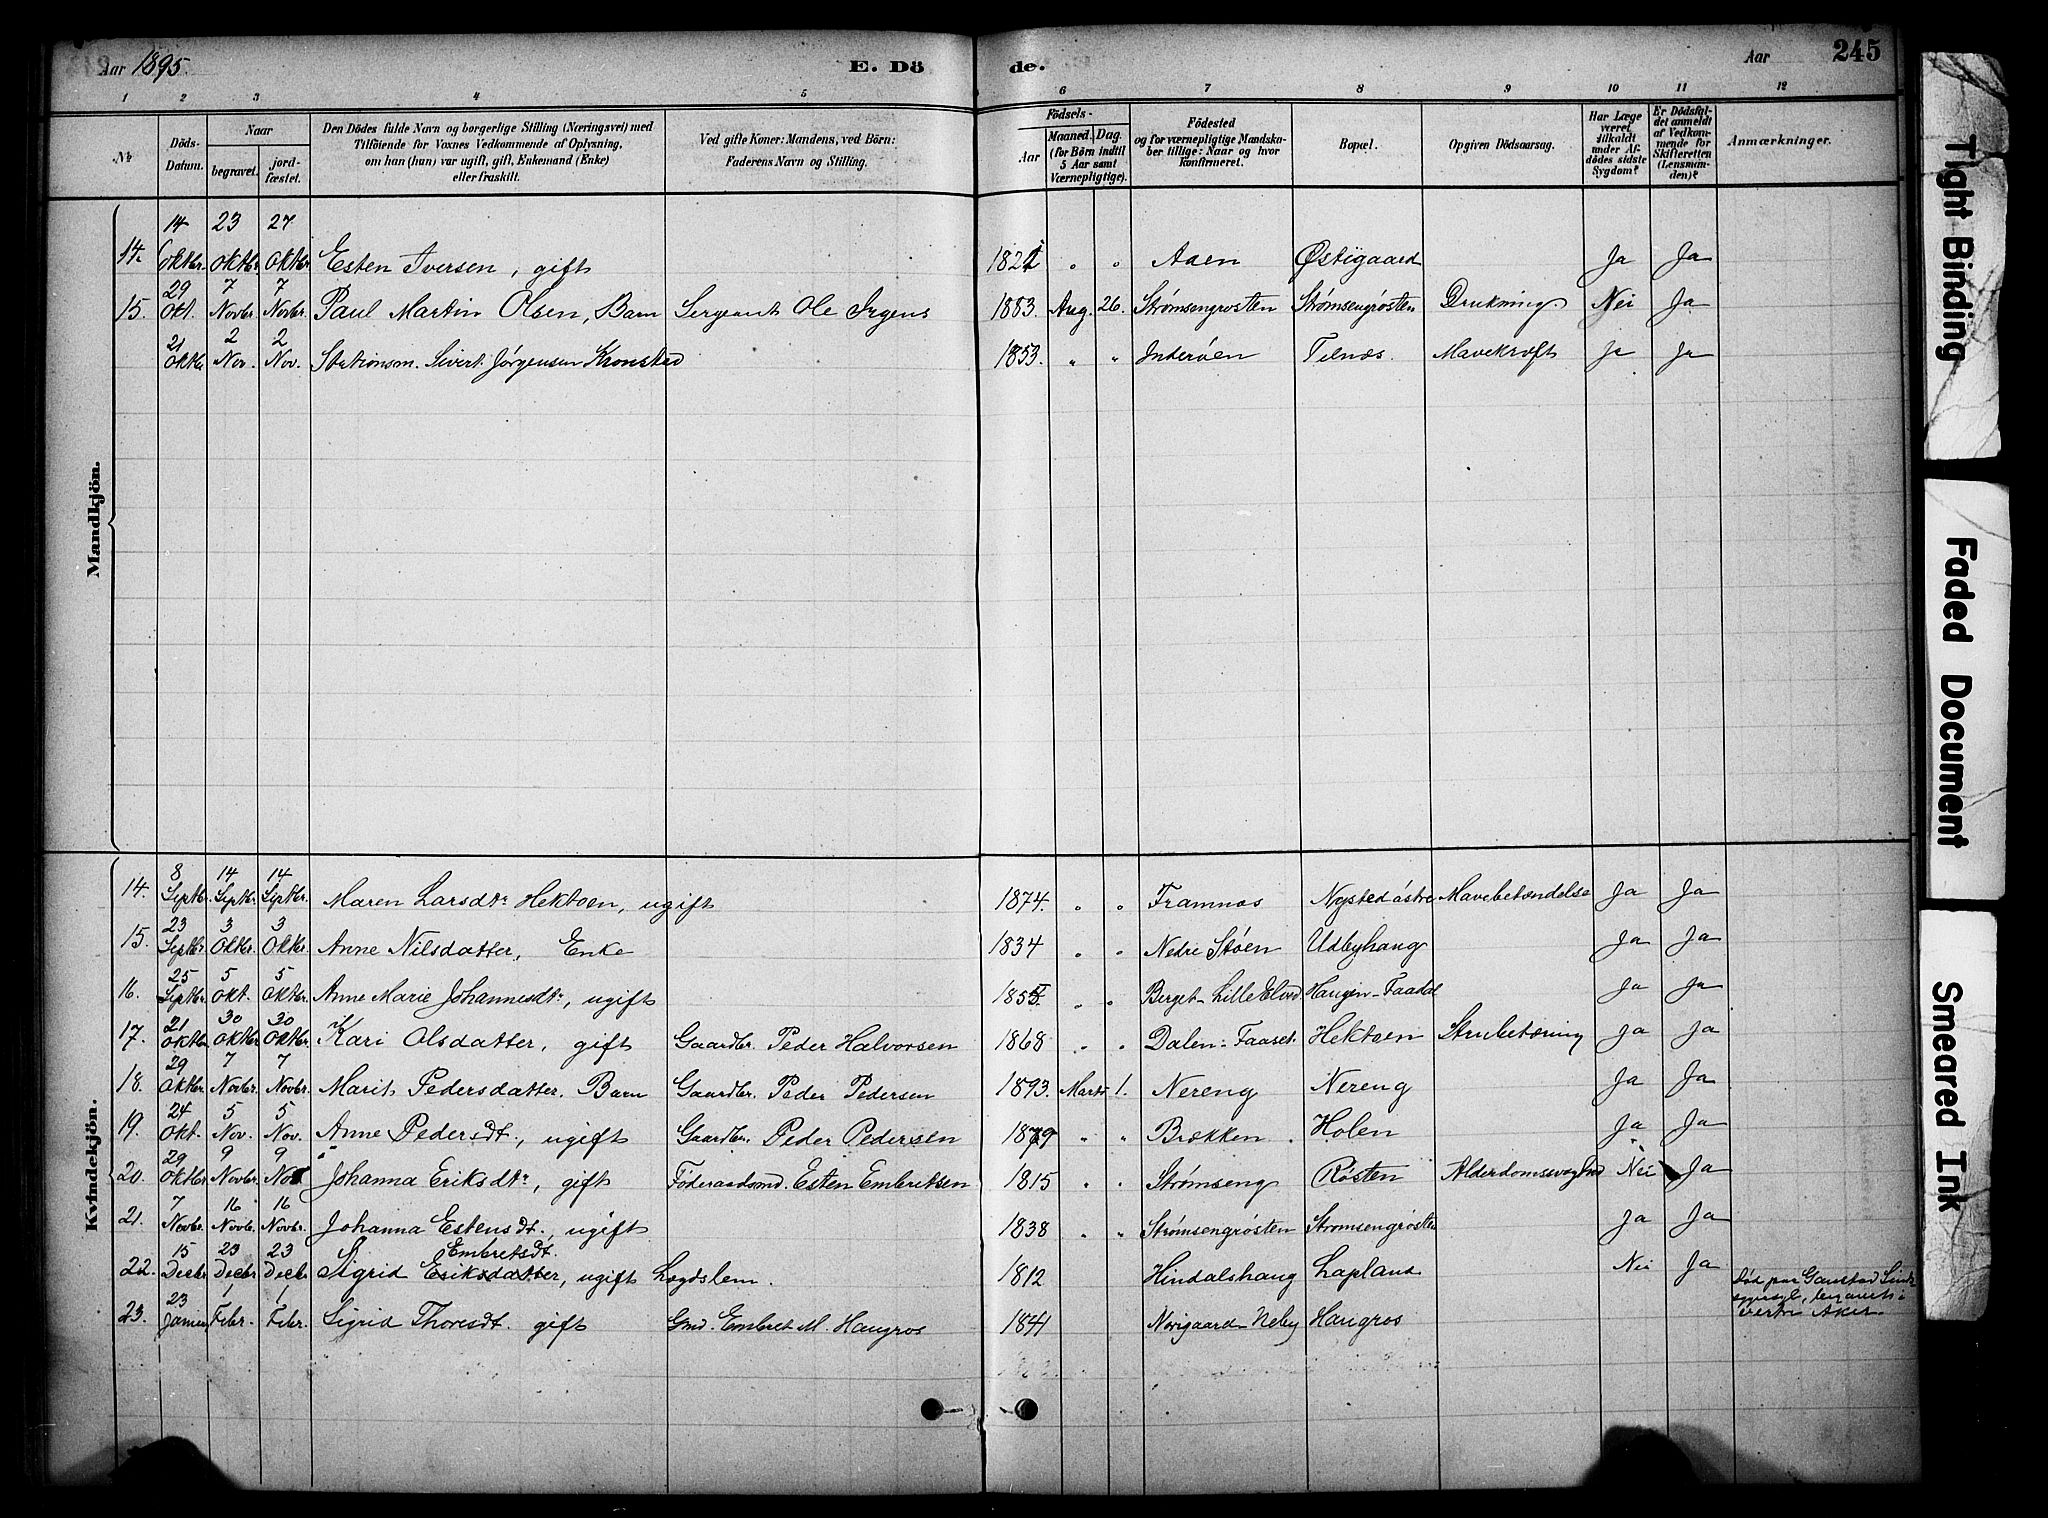 Aar 1895. E. Dö de. Aar 245
1 2 3 4 5 6 7 8 9 10 11 12
№ Döds-Datum. Naar begravet. jord-fæstet. Den Dödes fulde Navn og borgerlige Stilling (Næringsvei) med Tilföiende for Voxnes Vedkommende af Oplysning, om han (hun) var ugift, gift, Enkemand (Enke) eller fraskilt. Ved gifte Koner: Mandens, ved Börn: Faderens Navn og Stilling. Födsels- Aar Maaned. Dag. (for Börn indtil 5 Aar samt Værnepligtige). Födested og for værnepligtige Mandskaber tillige: Naar og hvor Konfirmeret. Bopæl. Opgiven Dödsaarsag. Har Læge været tilkaldt under Afdödes sidste Sygdom? Er Dödsfaldet anmeldt af Vedkommende for Skifteretten (Lensmanden)? Anmærkninger.
Mandkjön.
14. 14 Oktbr. 23 Oktbr 27 Oktbr. Esten Iversen, gift 1821 " " Aaen Østigaard Ja Ja
15. 29 Okt. 7 Novbr. 7 Novbr. Paul Martin Olsen, Barn Sergeant Ole 1883. Aug. 26. Strømsengrøsten Strømsengrøsten Drukning. Nei Ja
21 Oktbr 2 Nov. 2 Nov. Stationsm. Sivert Jørgensen Kronstad 1853. " " Inderøen Telnæs. Mavekræft Ja Ja
Kvindekjön.
14. 8 Septbr. 14 Septbr. 14 Septbr. Maren Larsdtr Hektoen, ugift 1874. " " Framnæs Nysted østre Mavebetændelse Ja Ja
15. 23 Septbr. 3 Oktbr. 3 Oktbr. Anne Nilsdatter, Enke 1834 " " Nedre Støen Udbyhaug Ja Ja
16. 25 Septbr. 5 Okt. 5 Oktbr. Anne Marie Johannesdtr, ugift " " Berget - Lille Elvd Haugen - Faadal Ja Ja
17. 21 Oktbr 30 Oktbr 30 Oktbr. Kari Olsdatter, gift Gaardbr. Peder Halvorsen 1868 " " Dalen - Faaset. Hektoen Strubetæring Ja Ja
18. 29 Oktbr 7 Novbr. 7 Novbr. Marit Pedersdatter. Barn Gaardbr. Peder Pedersen 1893. Marts 1. Nereng Nereng Ja Ja
19. 24 Okt. 5 Nov. 5 Nov. Anne Pedersdt., ugift Gaardbr. Peder Pedersen 1879 " " Brækken Holen Ja Ja
20. 29 Oktbr 9 Novbr. 9 Nov Johanna Eriksdtr, gift Føderaadsmd. Esten Embretsen 1815 " " Strømseng Røsten Nei Ja
21. 7 Novbr. 16 Novbr. 16 Novbr. Johanna Estensdt., ugift 1838 " " Strømsengrøsten Strømsengrøsten Ja Ja
22. 15 Decbr 23 Decbr 23 Decbr Sigrid Embretsdt. Eriksdatter, ugift Lægdslem. 1812 Hindalshaug Lapland Nei Ja
23. 23 1 Febr. 1 Febr. Sigrid Thoresdt. gift Gmd. Embret M. Haugros 1841 Norigaard Neby Haugros død paa Gaustad Sinds
sygeasyl, i
Aker
Tight Binding
Faded Document
Smeared Ink